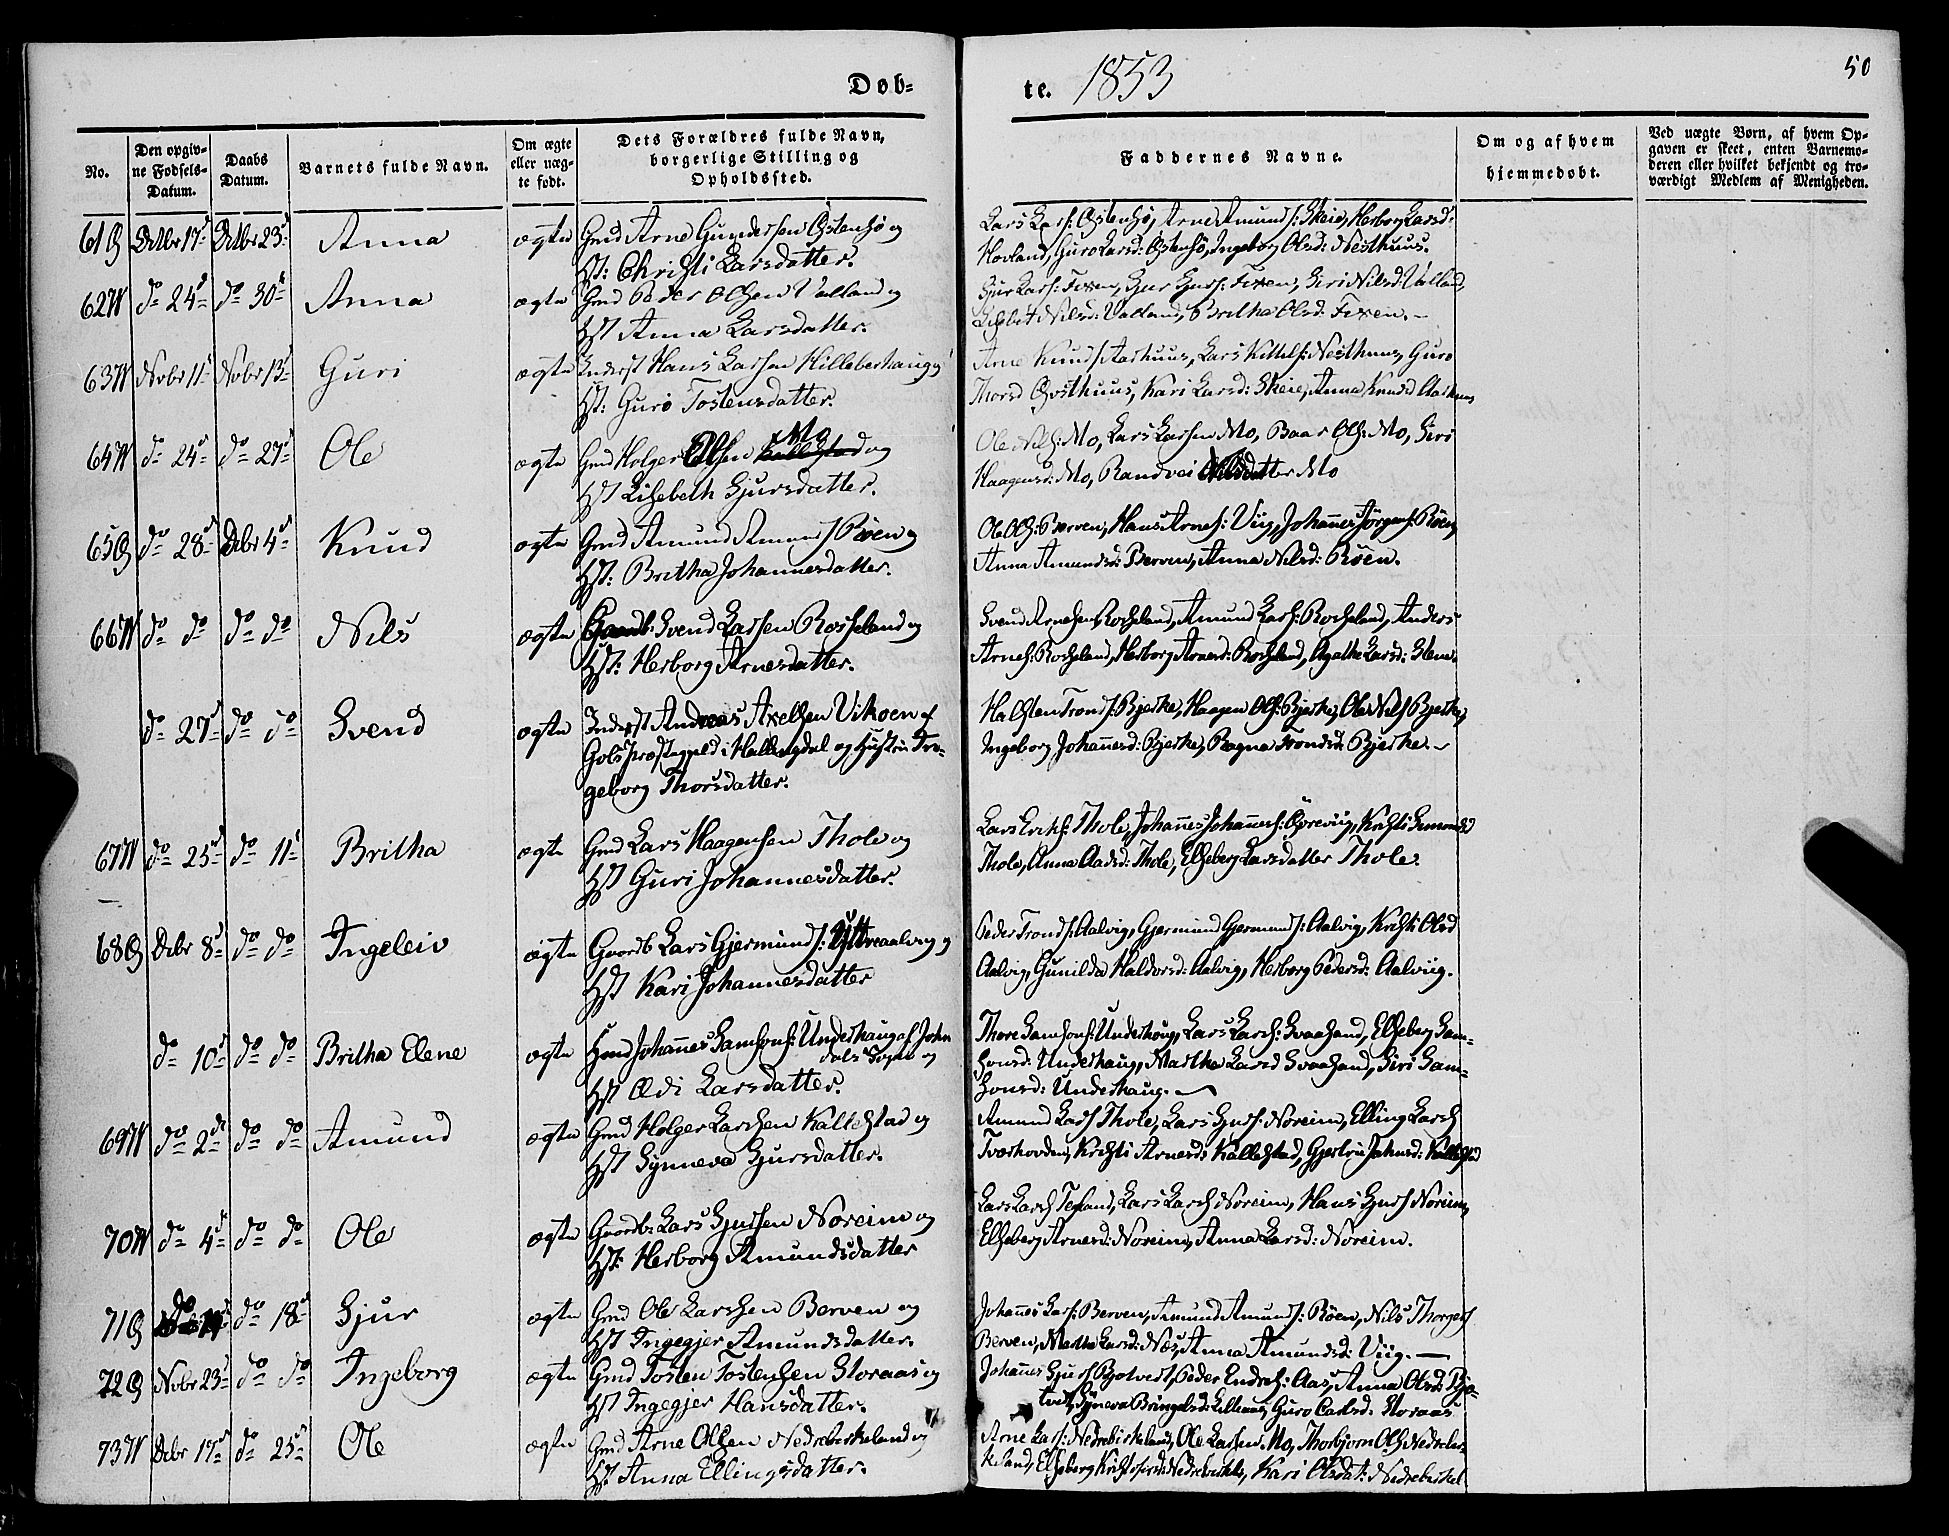 Døb-
te. 1853
50
No.
Den opgiv-
ne Fødsels-
Datum.
Daabs
Datum.
Barnets fulde Navn.
Om ægte
eller uæg-
te født.
Dets Forældres fulde Navn,
borgerlige Stilling og
Opholdssted.
Faddernes Navne.
Om og af hvem
hjemmedøbt.
Ved uægte Børn, af hvem Op-
gaven er skeet, enten Barnemo-
deren eller hvilket bekjendt og tro-
værdigt Medlem af Menigheden.
61 Octbr 17d Octbr 23d Anna ægte Gmd Arne Gundersen Østensø og
Hst: Christi Larsdatter.
Lars Lars: Østensø, Arne Amunds: Skeie, Herborg Larsd:
Hovland, Guro Larsd: Østensø, Ingeborg Olsd: Nesthuus.
62 do 24d do 30d Anna ægte Gmd Peder Olsen Valland og
Hst Anna Larsdatter.
Sjur Lars: Fixen, Sjur Sjurs: Fixen, Siri Nilsd: Valland,
Lisbet Nilsd: Valland, Britha Olsd: Fixen.
63 Novbr 11d Novbr 13d Guri ægte Inderst Hans Larsen Hilleberhaug og
Hst: Guro Tostensdatter.
Arne Knuds: Aarhuus, Lars Kittels: Nesthuus, Guro
Thorsd Øvsthuus, Kari Larsd: Skeie, Anna Knudsd Aarhuus
64 do 24d do 27d Ole ægte Gmd Holger Olsen Mo og
Hst Lisebeth Sjursdatter.
Ole Nils: Mo, Lars Larsen Mo, Baar Ols: Mo, Siri
Haagensd: Mo, Randvei Nilsdatter Mo
65 do 28d Debr 4d Knud ægte Gmd Amund Amunds Røen og
Hst: Britha Johannesdatter.
Ole Ols: Berven, Hans Arnes: Viig, Johannes Jørgens: Røen,
Anna Amundsd: Berven, Anna Nilsd: Røen.
66 do do do do Nils ægte Gaardb: Svend Larsen Rosseland og
Hst: Herborg Arnesdatter.
Svend Arnesen Rosseland, Amund Lars: Rosseland, Anders
Arnes: Rosseland, Herborg Arnesd: Rosseland, Agatha Larsd: Stene.
do 27d do do Svend ægte Inderst Andreas Axelsen Vikøen af
Gols Præstegjeld i Hallingdal og Hustru In-
geborg Thorsdatter.
Halsten Tronds: Bjerke, Haagen Ols: Bjerke, Ole Nils Bjerke,
Ingeborg Johannesd: Bjerke, Ragna Trondsd: Bjerke.
67 do 25d do 11d Britha ægte Gmd Lars Haagensen Thole og
Hst Guri Johannesdatter.
Lars Eriks: Thole, Johannes Johanness: Øpreviig, Kristi
Thole, Anna Aadsd: Thole, Elseberg Larsdatter Thole.
68 Debr 8d do do Ingeleiv ægte Gaardb Lars Gjermunds: Yttreaalvig og
Hst Kari Johannesdatter
Peder Tronds: Aalvig, Gjermund Gjermunds: Aalvig, Kristi Olsd
Aalvig, Gunilda Haldorsd: Aalvig, Herborg Pedersd: Aalviig.
do 10d do do Britha Elene ægte Gmd Johannes Samsons: Underhaug af Jon
dals Sogn og
Hst Ædi Larsdatter.
Thore Samsons: Underhaug, Lars Lars: Svaasand, Elseberg Sam-
sonsd: Underhaug, Martha Larsd Svaasand, Siri Sam-
sonsd: Underhaug.
69 do 2d do do Amund ægte Gmd Holger Larsen Kallestad og
Hst Synneva Sjursdatter.
Amund Lars Thole, Lars Sjurs: Noreim, Elling Lars
Tværhovden, Kristi Arnesd: Kallestad, Gjertru Johnsd: Kallestad
70 do 4d do do Ole ægte Gaardb: Lars Sjursen Noreim og
Hst: Herborg Amundsdatter
Lars Lars Teyland, Lars Lars Noreim, Hans Sjurs Noreim,
Elseberg Arnesd: Noreim, Anna Larsd: Noreim.
71 do 19d do 18d Sjur ægte Gmd Ole Larsen Berven og
Hst Ingegjer Amundsdatter.
Johannes Lars: Berven, Amund Amunds: Røen, Nils Thorgers
Berven, Martha Larsd: Næs, Anna Amundsd: Viig.
72 Novbr 23d do do Ingeborg ægte Gmd Tosten Tostensen Storaas og
Hst Ingegjer Hansdatter.
Johannes Sjurs Bjotvedt, Peder Endres: Aas, Anna Olsd: Bjo-
tvedt, Syneva Bringelsd: Guro Larsd: Storaas
73 Debr 17d do 25d Ole ægte Gmd Arne Olsen Nedrebirkeland og
Hst Anna Ellingsdatter.
Arne Lars: Nedrebirkeland, Ole Larsen Mo, Thorbjørn Ols Nedrebir-
keland, Elseberg Nedrebirkel:, Kari Olsdat: Nedrebirkel